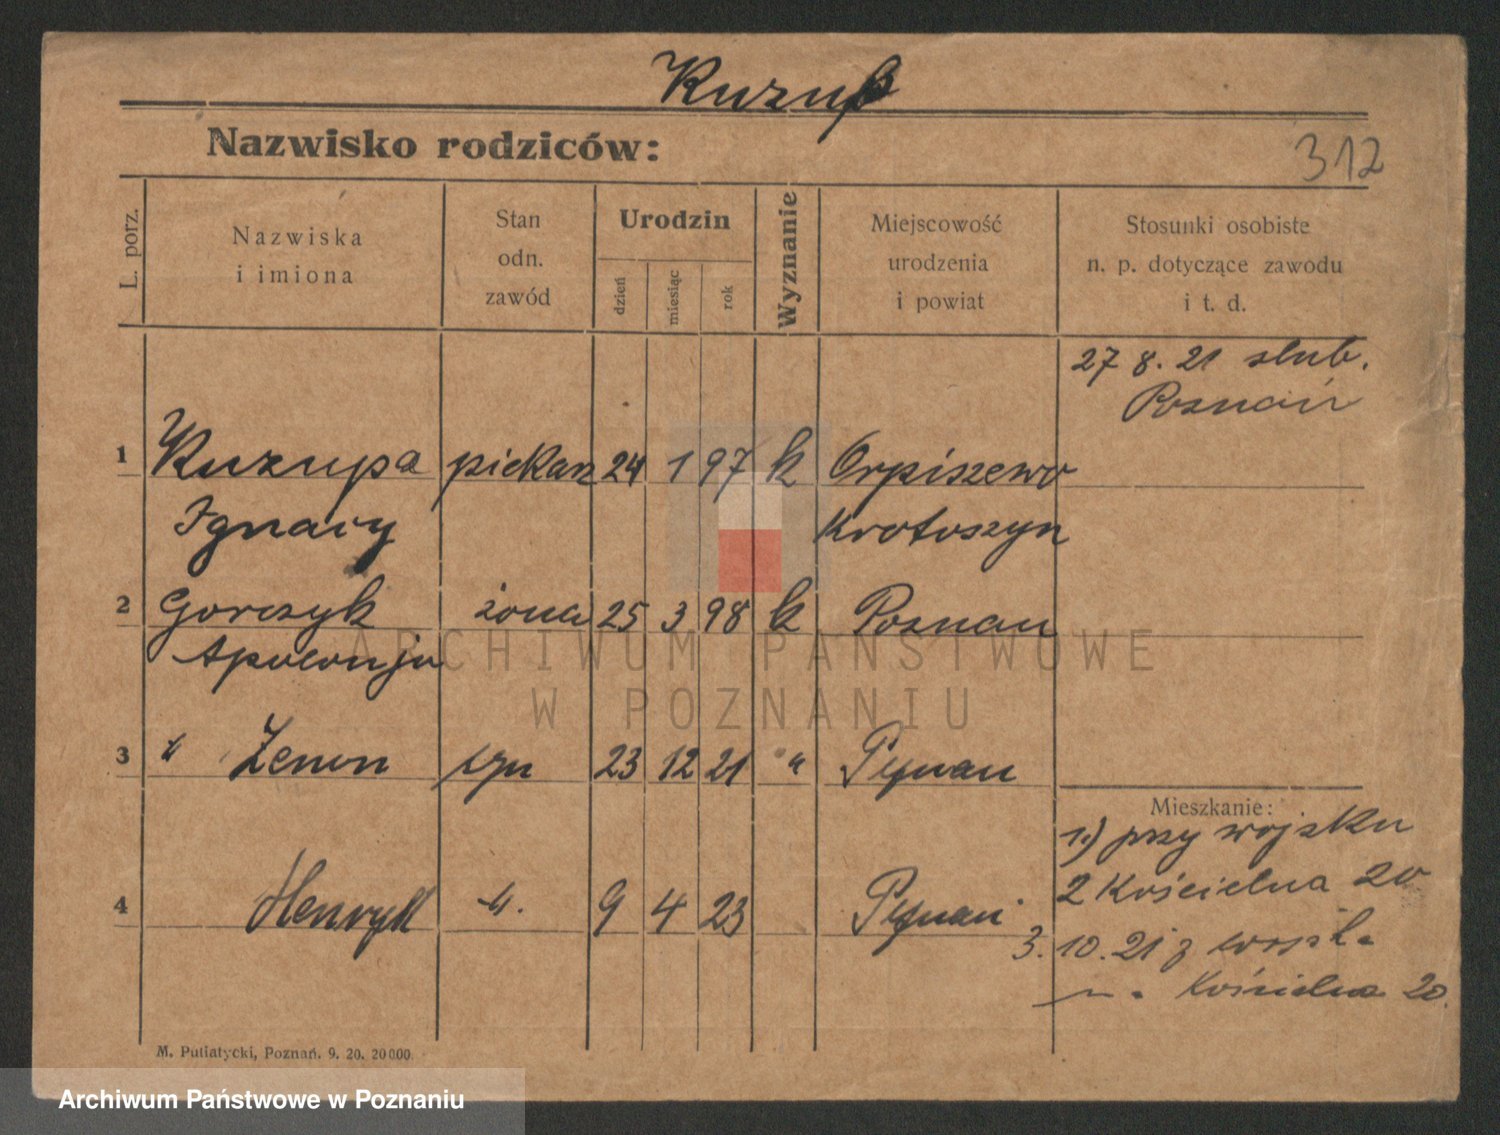 Kuzup
Nazwisko rodziców:
312
L. porz.
Nazwiska
i imiona
Stan
odn.
zawód
Urodzin
dzień
miesiąc
rok
Wyznanie
Miejscowość
urodzenia
i powiat
Stosunki osobiste
n. p. dotyczące zawodu
i t. d.
27 8. 21 slub.
Poznań
1 Kuzupa piekarz 24 1 97 k Orpiszewo
Ignacy Krotoszyn
2 Gorczyk żona 25 3 98 k Poznan
Apolonja
3 " Zenon syn 23 12 21 "
Mieszkanie:
1.) przy wojsku
4 Henryk ". 9 4 23
2 Kościelna 20
3. 10. 21 z
Kościelna 20.
M. Putiatycki, Poznań. 9. 20. 20000.
ARCHIWUM PAŃSTWOWE
W POZNANIU
Archiwum Państwowe w Poznaniu